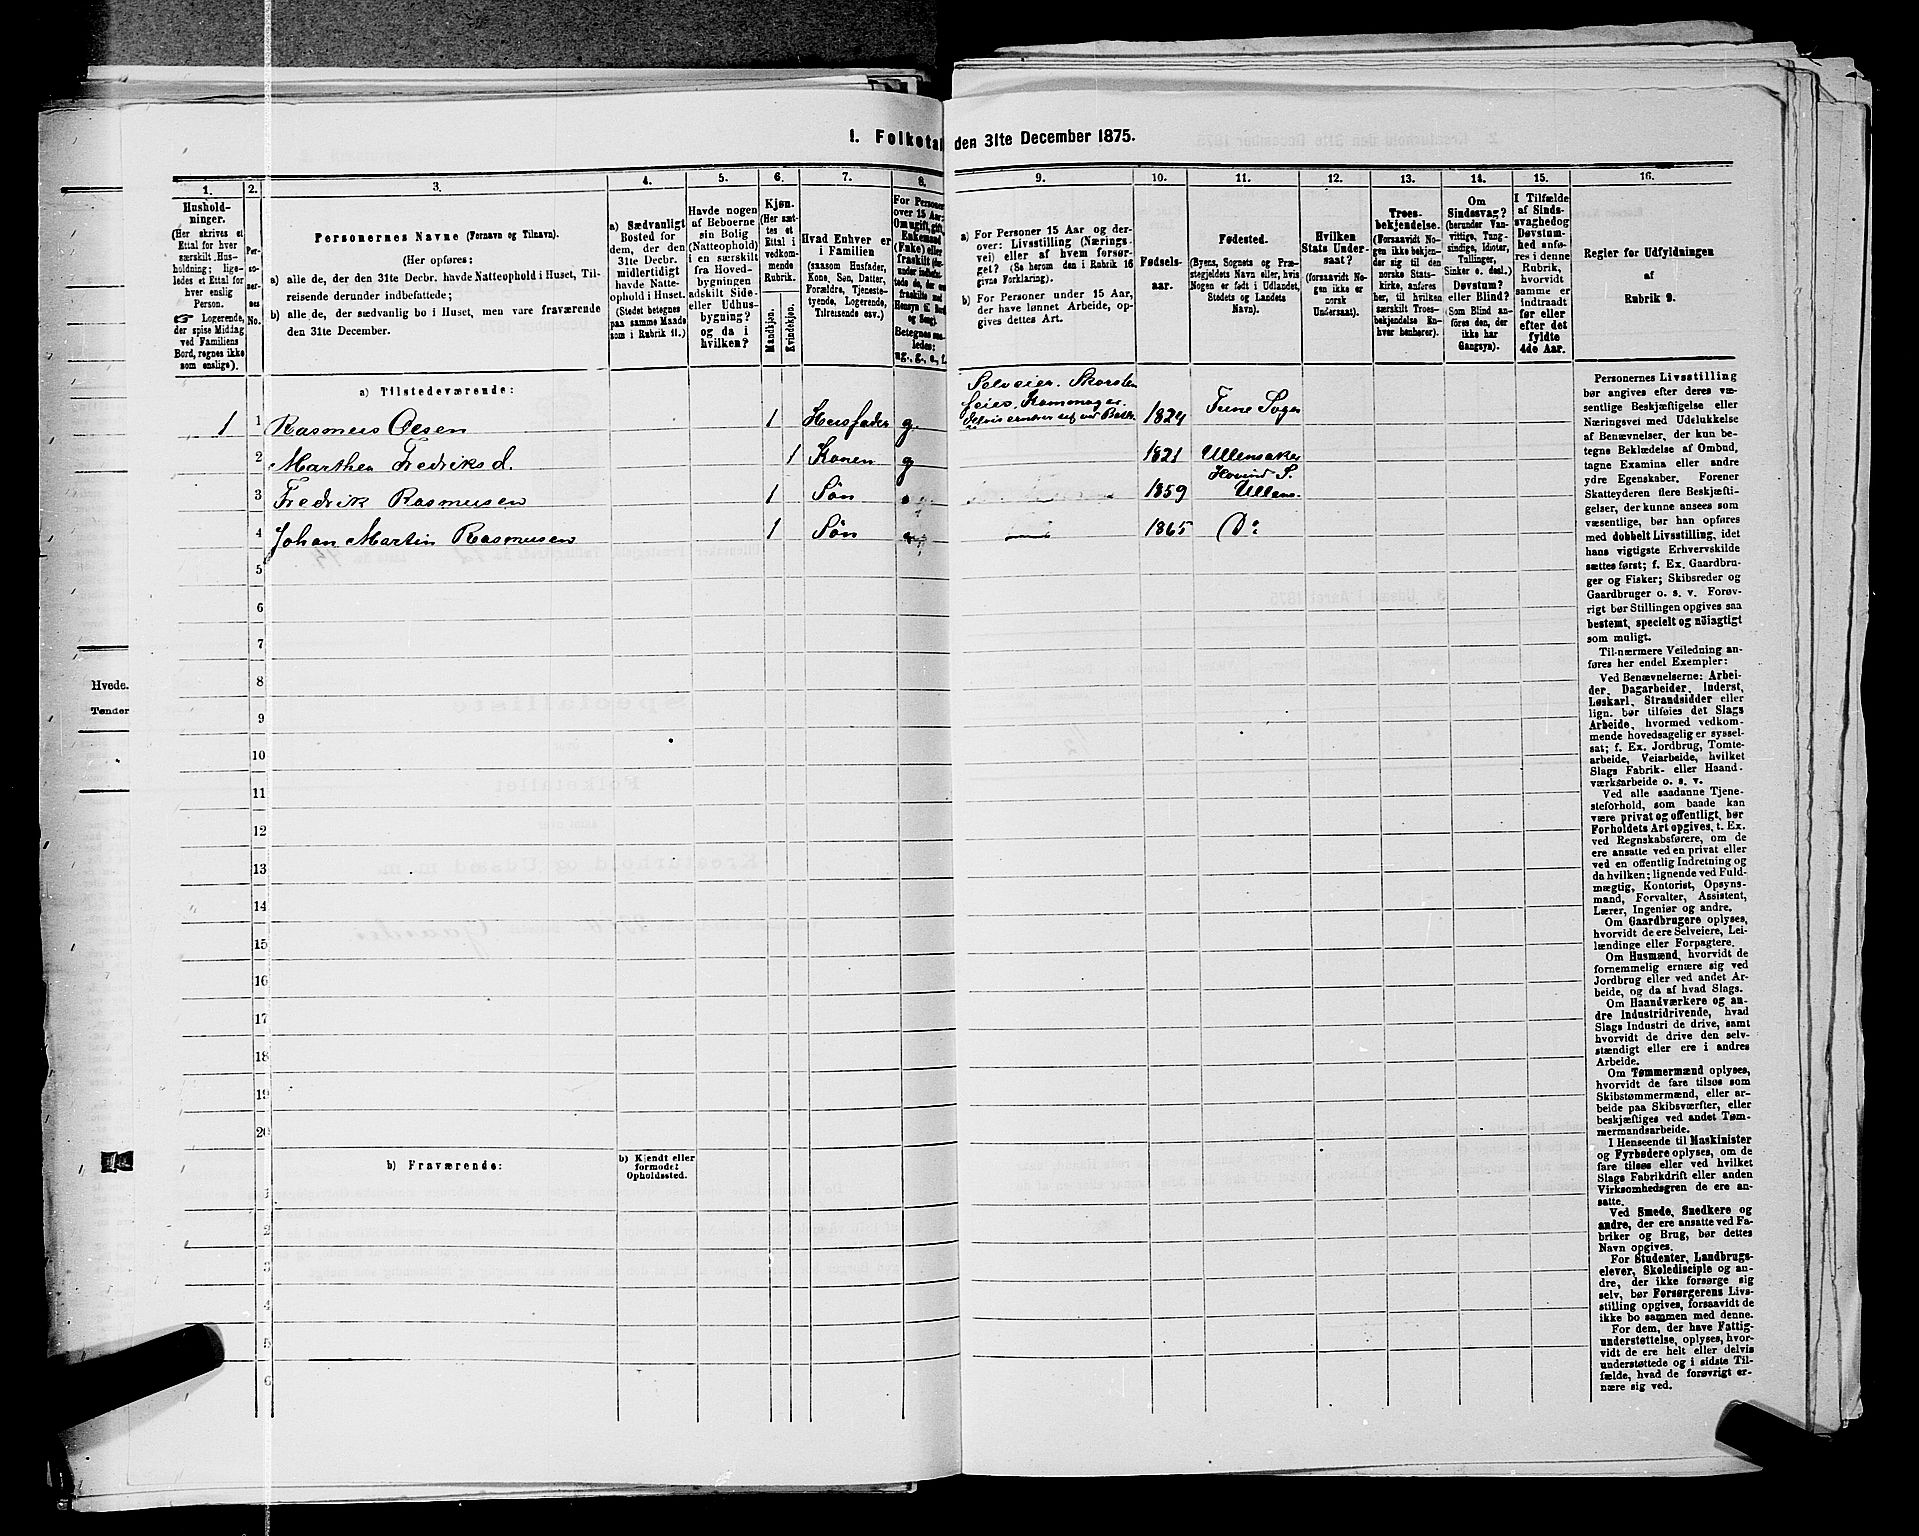 1. Folketal den 31te December 1875.
1.
2.
3.
4.
5.
6.
7.
8.
9.
10.
11.
12.
13.
14.
15.
16.
Hushold-
ninger.
(Her skrives et
Ettal for hver
særskilt Hus-
holdning; lige-
ledes et Ettal for
hver enslig
Person.
☞ Logerende,
der spise Middag
ved Familiens
Bord, regnes ikke
som enslige).
Per-
so-
ner-
nes
No.
Personernes Navne (Fornavn og Tilnavn).
(Her opføres:
a) alle de, der den 31te Decbr. havde Natteophold i Huset, Til-
reisende derunder indbefattede;
b) alle de, der sædvanlig bo i Huset, men vare fraværende
den 31te December.
a) Sædvanligt
Bosted for
dem, der den
31te Decbr.
midlertidigt
havde Natte-
ophold i Huset.
(Stedet betegnes
paa samme Maade
som i Rubrik 11.)
Havde nogen
af Beboerne
sin Bolig
(Natteophold)
i en særskilt
fra Hoved-
bygningen
adskilt Side-
eller Udhus-
bygning?
og da i
hvilken?
Kjøn.
(Her sæt-
tes et
Ettal i
vedkom-
mende
Rubrik.
Mandkjøn.
Kvindekjøn.
Hvad Enhver er
i Familien
(saasom Husfader,
Kone, Søn, Datter,
Forældre, Tjeneste-
tyende, Logerende,
Tilreisende osv.)
For Personer
over 15 Aar:
Om ugift, gift,
Enkemand
(Enke) eller
fraskilt
Betegnes saa-
ledes:
ug., g., e., f.
a) For Personer 15 Aar og der-
over: Livsstilling (Nærings-
vei) eller af hvem forsør-
get? (Se herom den i Rubrik 16
givne Forklaring).
b) For Personer under 15 Aar,
der have lønnet Arbeide, op-
gives dettes Art.
Fødsels-
aar.
Fødested.
(Byens, Sognets og Præ-
stegjeldets Navn eller, hvis
Nogen er født i Udlandet,
Stedets og Landets
Navn).
Hvilken
Stats Under-
saat?
(forsaavidt No-
gen ikke er
norsk
Undersaat).
Troes-
bekjendelse.
(Forsaavidt No-
gen ikke bekjen-
der sig til den
norske Stats-
kirke, anføres
her, til hvilken
særskilt Troes-
bekjendelse En-
hver henhører).
Om
Sindssvag?
(herunder Van-
vittige, Tung-
sindige, Idioter,
Tullinger,
Sinker o. desl.)
Døvstum?
eller Blind?
(Som Blind an-
føres den, der
ikke har
Gangsyn).
I Tilfælde
af Sinds-
svaghed og
Døvstum-
hed anfø-
res i denne
Rubrik,
hvorvidt
samme er
indtraadt
før eller
efter det
fyldte
4de Aar.
Regler for Udfyldningen
af
Rubrik 9.
a) Tilstedeværende:
Selveier. Skorsten
feier, Kammager.
1 1 Rasmus Olsen 1 Husfader g. 1824 Tune Sogn
2 Marthea Fredriksd. 1 Konen g 1821 Ullensaker
Hovind S.
3 Fredrik Rasmusen 1 Søn 1859 Ullens.
4 Johan Martin Rasmusen 1 Søn 1865 Do
5
6
7
8
9
10
11
12
13
14
15
16
17
18
19
20
b) Fraværende:
b) Kjendt eller
formodet
Opholdssted.
1
2
3
4
5
6
Personernes Livsstilling
bør angives efter deres væ-
sentlige Beskjæftigelse eller
Næringsvei med Udelukkelse
af Benævnelser, der kun be-
tegne Beklædelse af Ombud,
tagne Examina eller andre
ydre Egenskaber. Forener
Skatteyderen flere Beskjæfti-
gelser, der kunne ansees som
væsentlige, bør han opføres
med dobbelt Livsstilling, idet
hans vigtigste Erhvervskilde
sættes først; f. Ex. Gaardbru-
ger og Fisker; Skibsreder og
Gaardbruger o. s. v. Forøv-
rigt bør Stillingen opgives saa
bestemt, specielt og nöiagtigt
som muligt.
Til nærmere Veiledning an-
føres her endel Exempler:
Ved Benævnelserne: Arbei-
der, Dagarbeider, Inderst,
Løskarl, Strandsidder eller
lign. bør tilføies det Slags
Arbeide, hvormed vedkom-
mende hovedsagelig er syssel-
sat; f. Ex. Jordbrug, Tomte-
arbeide, Veiarbeide, hvilket
Slags Fabrik- eller Haand-
værksarbeide o. s. v.
Ved alle saadanne Tjene-
steforhold, som baade kan
være privat og offentligt, bør
Forholdets Art opgives, t. Ex.
ved Regnskabsførere, om de
ere ansatte ved en privat eller
ved en offentlig Indretning og
da hvilken; lignende ved Fuld-
mægtig, Kontorist, Opsyns-
mand, Forvalter, Assistent,
Lærer, Ingeniør og andre.
Om Gaardbrugere oplyses,
hvorvidt de ere Selveiere, Lei-
lændinge eller Forpagtere.
Om Husmænd, hvorvidt de
fornemmelig ernære sig ved
Jordbrug eller ved andet Ar-
beide, og da af hvad Slags.
Om Haandværkere og an-
dre Industridrivende, hvad
Slags Industri de drive, samt
hvorvidt de drive den selv-
stændigt eller ere i andres
Arbeide.
Om Tømmermænd oplyses,
hvorvidt de fare tilsøs som
Skibstømmermænd, eller ar-
beide paa Skibsværfter, eller
beskjæftiges ved andet Tøm-
mermandsarbeide.
I Henseende til Maskinister
og Fyrbødere oplyses, om de
fare tilsøs eller ved hvilket
Slags Fabrikdrift eller anden
Virksomhedsgren de ere an-
satte.
Ved Smede, Snedkere og
andre, der ere ansatte ved Fa-
briker og Brug, bør dettes
Navn opgives.
For Studenter, Landbrugs-
elever, Skoledisciple og an-
dre, der ikke forsørge sig
selv, bør Forsørgerens Livs-
stilling opgives, forsaavidt de
ikke bo sammen med denne.
For dem, der have Fattig-
understøttelse, oplyses, hvor-
vidt de ere helt eller delvis
understøttede og i sidste Til-
fælde, hvad de forøvrigt er-
nære sig ved.
Hvede.
Tønder